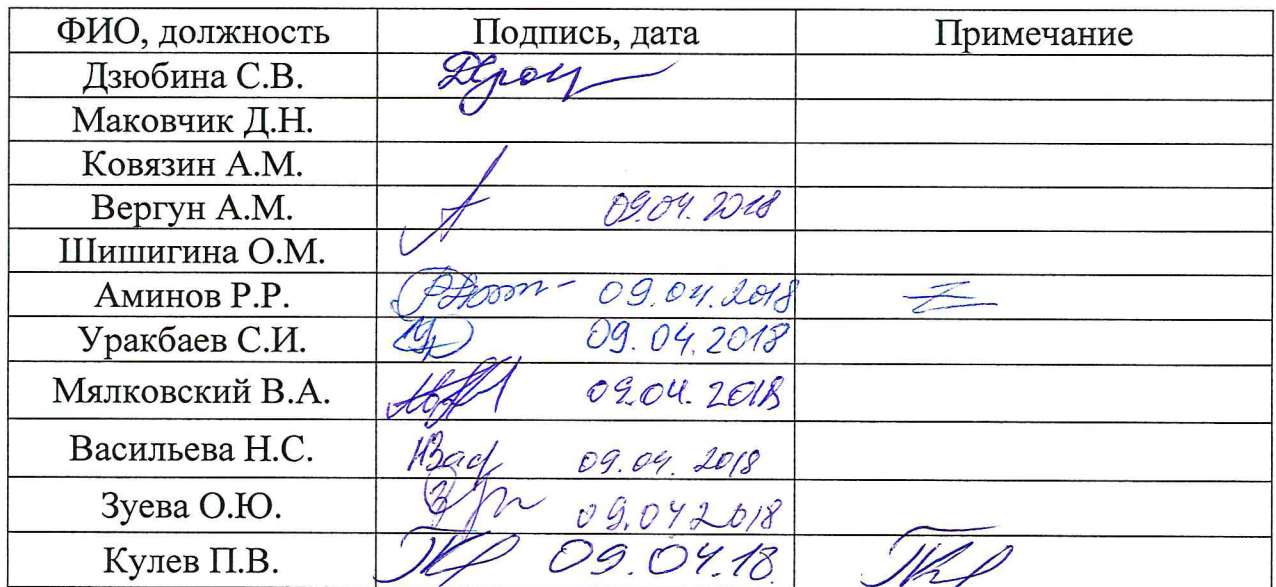 ФИО, должность Подпись, дата Примечание
Дзюбина С.В.
Маковчик Д.Н.
Ковязин А.М.
Вергун А.М. 09.04.2018
Шишигина О.М.
Аминов Р.Р. 09.04.2018
Уракбаев С.И. 09.04.2018
Мялковский В.А. 09.04.2018
Васильева Н.С. 09.04.2018
Зуева О.Ю. 09.04 2018
Кулев П.В. 09.04.18.